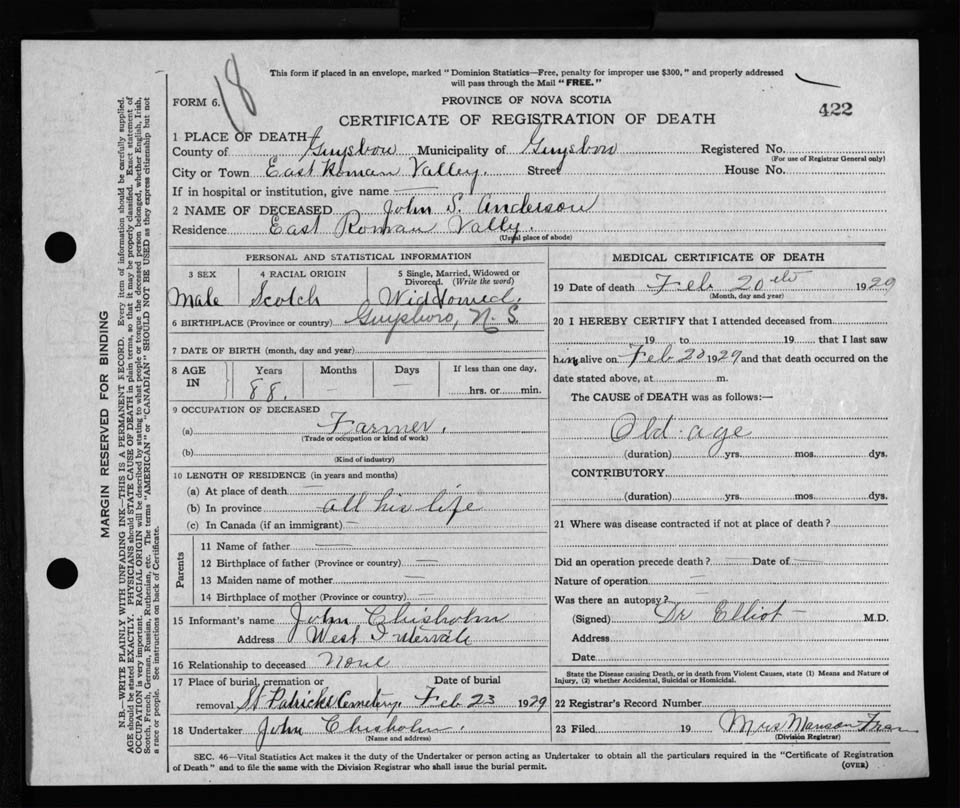 18
This form if placed in an envelope, marked "Dominion Statistics—Free, penalty for improper use $300," and properly addressed
will pass through the Mail "FREE."
FORM 6.
PROVINCE OF NOVA SCOTIA
422
CERTIFICATE OF REGISTRATION OF DEATH
1 PLACE OF DEATH
County of Guysboro Municipality of Guysboro Registered No.
(For use of Registrar General only)
City or Town East Roman Valley. Street House No.
If in hospital or institution, give name —
2 NAME OF DECEASED John S. Anderson
Residence East Roman Vally.
(Usual place of abode)
PERSONAL AND STATISTICAL INFORMATION
3 SEX 4 RACIAL ORIGIN 5 Single, Married, Widowed or
Divorced. (Write the word)
Male Scotch Widdowed.
6 BIRTHPLACE (Province or country) Guysboro, N. S.
7 DATE OF BIRTH (month, day and year)
8 AGE IN Years Months Days If less than one day,
88. — — hrs. or min.
9 OCCUPATION OF DECEASED
(a) Farmer.
(Trade or occupation or kind of work)
(b)
(Kind of industry)
10 LENGTH OF RESIDENCE (in years and months)
(a) At place of death —
(b) In province all his life
(c) In Canada (if an immigrant) —
Parents
11 Name of father —
12 Birthplace of father (Province or country) —
13 Maiden name of mother —
14 Birthplace of mother (Province or country) —
15 Informant's name John Chisholm
Address West Intervale
16 Relationship to deceased None
17 Place of burial, cremation or Date of burial
removal St Patricks Cemetery. Feb 23 1929
18 Undertaker John Chisholm.
(Name and address)
MEDICAL CERTIFICATE OF DEATH
19 Date of death Feb 20th 1929
(Month, day and year)
20 I HEREBY CERTIFY that I attended deceased from
19 to 19 that I last saw
him alive on Feb 20 1929 and that death occurred on the
date stated above, at m.
The CAUSE of DEATH was as follows:—
Old age
(duration) yrs. mos. dys.
CONTRIBUTORY
(duration) yrs. mos. dys.
21 Where was disease contracted if not at place of death?
Did an operation precede death? — Date of —
Nature of operation —
Was there an autopsy?
(Signed) Dr Elliot — M.D.
Address
Date
State the Disease causing Death, or in death from Violent Causes, state (1) Means and Nature of
Injury, (2) whether Accidental, Suicidal or Homicidal.
22 Registrar's Record Number
23 Filed 19 Mrs Manson
(Division Registrar)
SEC. 46—Vital Statistics Act makes it the duty of the Undertaker or person acting as Undertaker to obtain all the particulars required in the "Certificate of Registration
of Death" and to file the same with the Division Registrar who shall issue the burial permit.
(OVER)
MARGIN RESERVED FOR BINDING
N.B.—WRITE PLAINLY WITH UNFADING INK—THIS IS A PERMANENT RECORD. Every item of information should be carefully supplied.
AGE should be stated EXACTLY. PHYSICIANS should STATE CAUSE OF DEATH in plain terms, so that it may be properly classified. Exact statement of
OCCUPATION is very important. RACIAL ORIGIN will be described by stating to what people or tongue the deceased person belonged, whether English, Irish,
Scotch, French, German, Russian, Ruthenian, etc. The terms "AMERICAN" or "CANADIAN" SHOULD NOT BE USED as they express citizenship but not
a race or people. See instructions on back of Certificate.